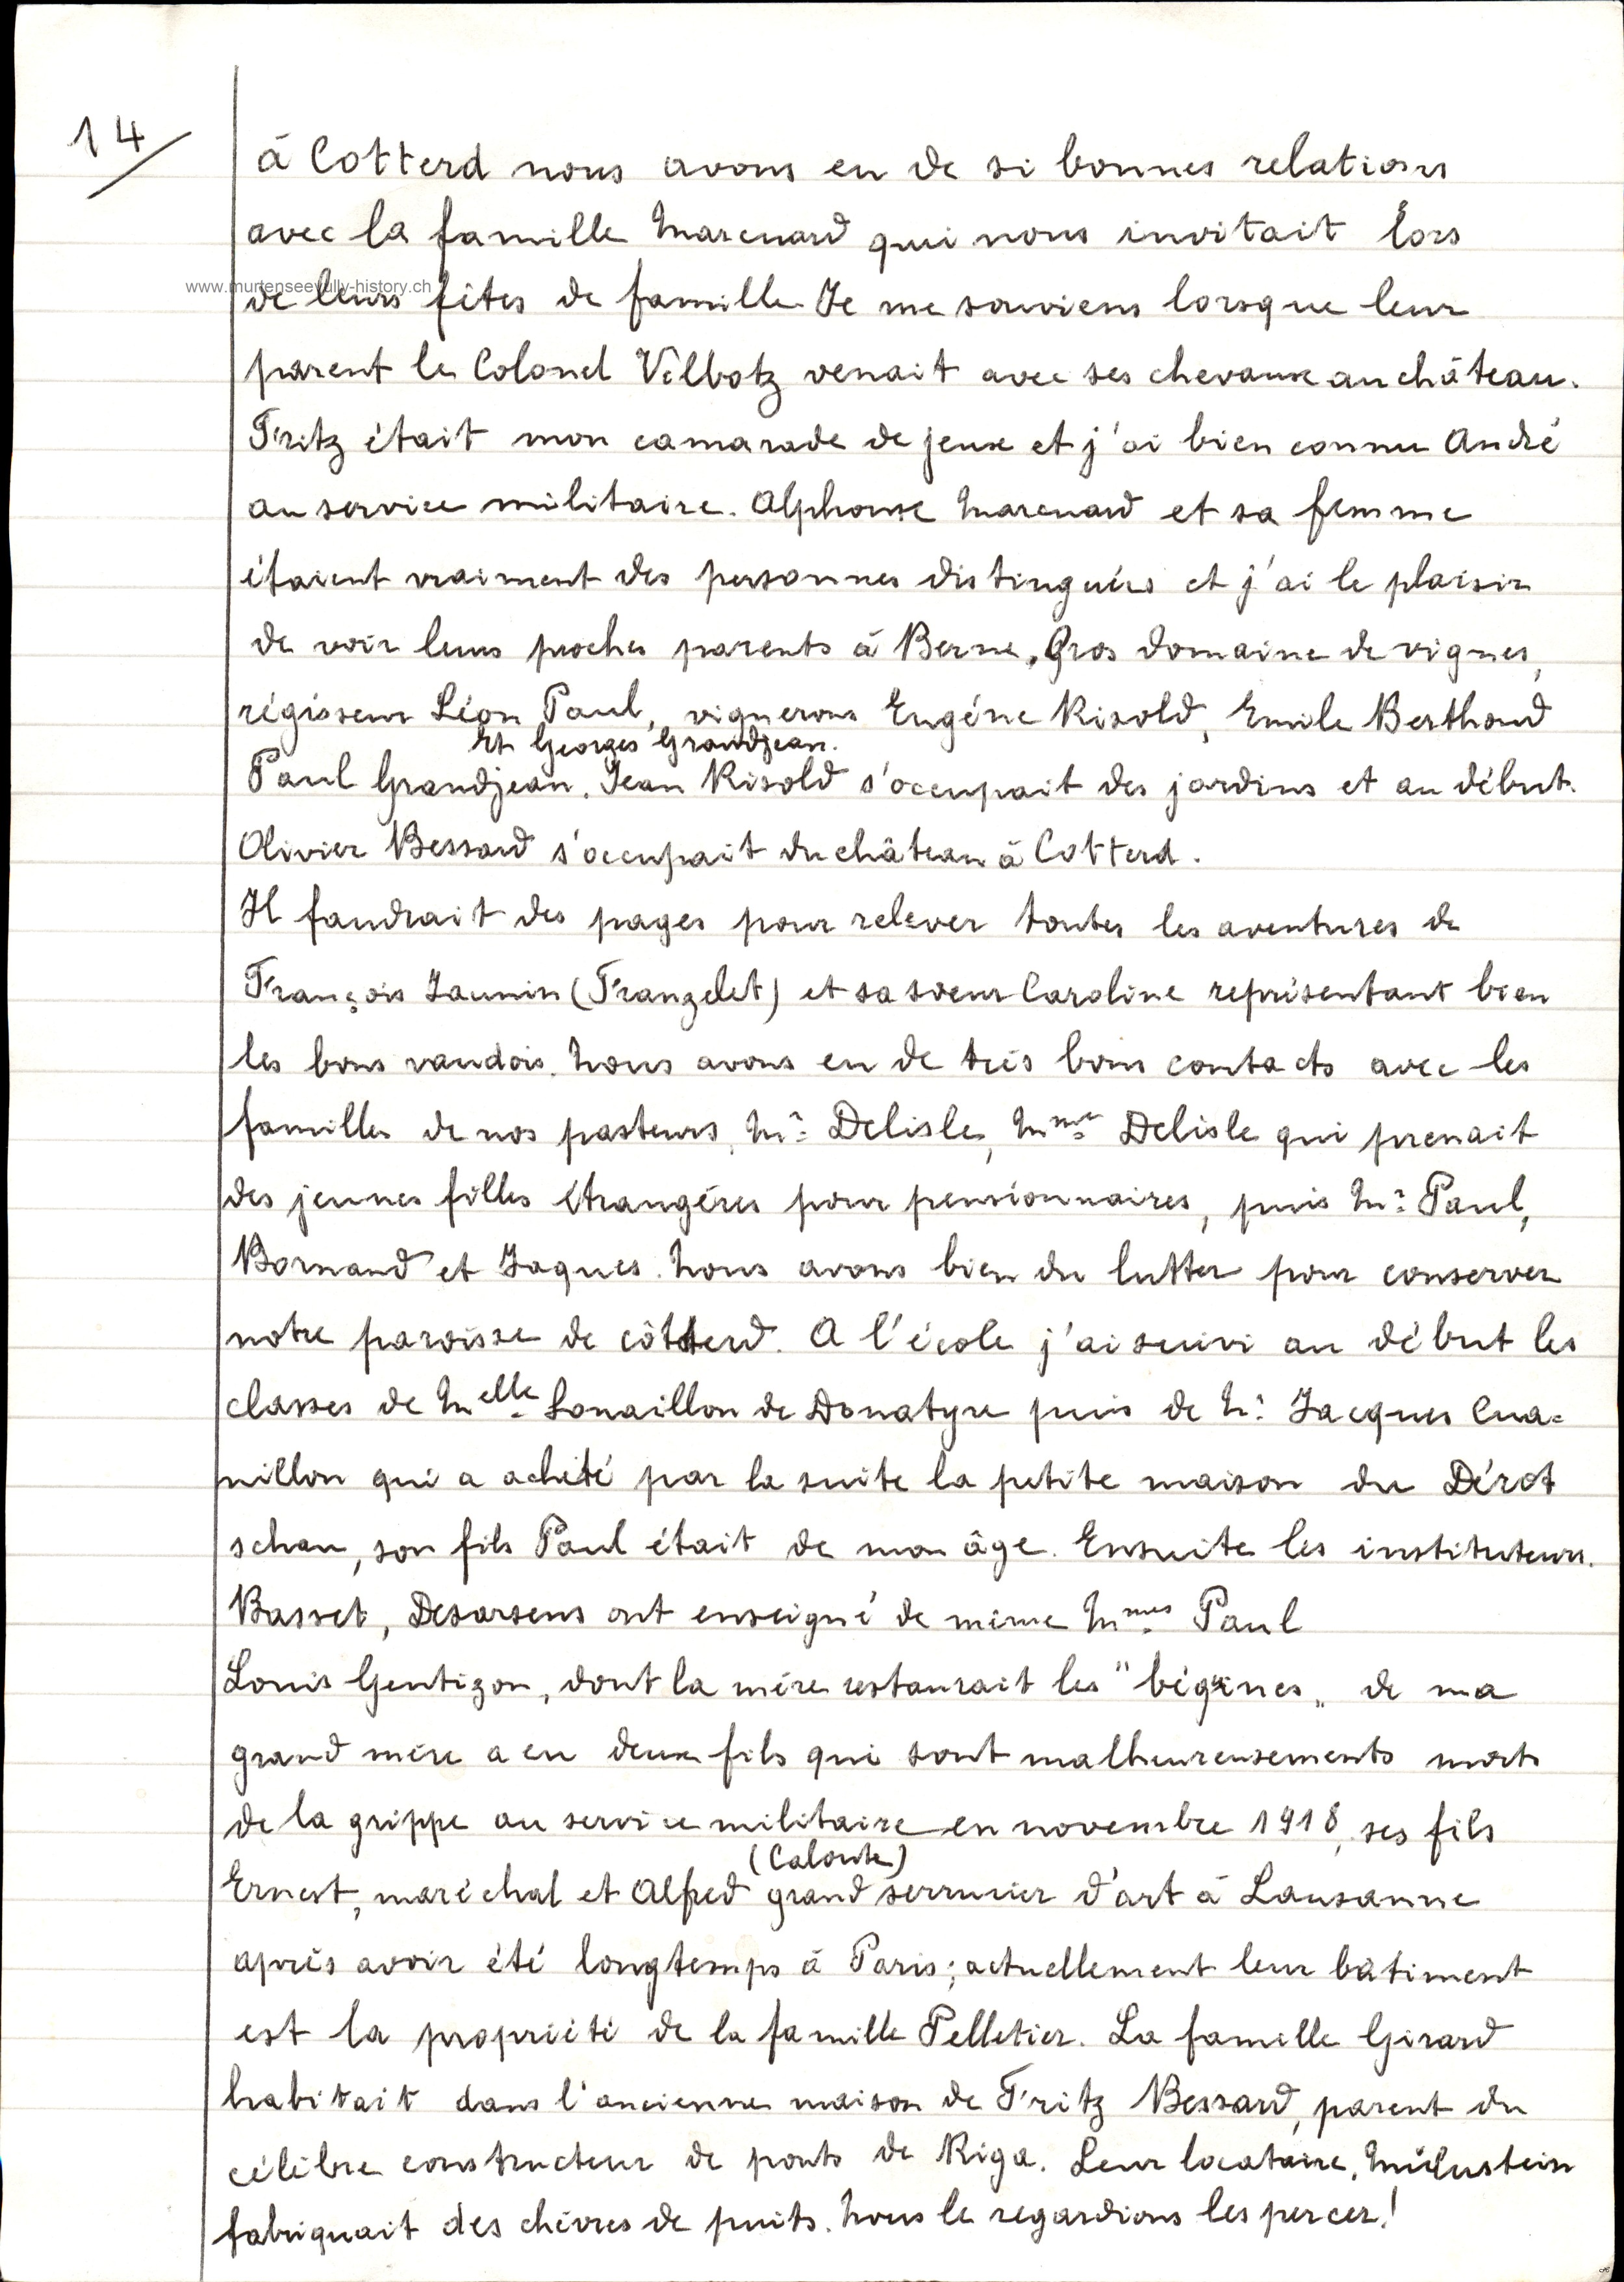 14/
à Cotterd nous avons eu de si bonnes relations
avec la famille Marcuard qui nous invitait lors
www.murtenseevully-history.ch
de leurs fêtes de famille. Je me souviens lorsque leur
parent le Colonel Vilbotz venait avec ses chevaux au château.
Fritz était mon camarade de jeux et j'ai bien connu André
au service militaire. Alphonse Marcuard et sa femme
étaient vraiment des personnes distinguées et j'ai le plaisir
de voir leurs proches parents à Berne. Gros domaine de vignes,
régisseur Léon Paul, vignerons Eugène Risold, Emile Berthoud
Et Georges Grandjean.
Paul Grandjean. Jean Risold s'occupait des jardins et au début
Olivier Bessard s'occupait du château à Cotterd.
Il faudrait des pages pour relever toutes les aventures de
François Jaunin (Franzelet) et sa soeur Caroline représentant bien
les bons vaudois. Nous avons eu de très bons contacts avec les
familles de nos pasteurs, Mr Delisle, Mme Delisle qui prenait
des jeunes filles étrangères pour pensionnaires, puis Mr Paul,
Bornand et Jaques. Nous avons bien du lutter pour conserver
notre paroisse de côtterd. A l'école j'ai suivi au début les
classes de Melle Lonaillon de Donatyre puis de Mr Jacques Cua=
nillon qui a acheté par la suite la petite maison du Dérot
schau, son fils Paul était de mon âge. Ensuite les instituteurs.
Basset, Desarsens ont enseigné de même Mmes Paul
Louis Gentizon, dont la mère restaurait les "béguines" de ma
grand mère a eu deux fils qui sont malheureusements morts
de la grippe au service militaire en novembre 1918, ses fils
(Caloute)
Ernest, maréchal et Alfred grand serrurier d'art à Lausanne
après avoir été longtemps à Paris; actuellement leur bâtiment
est la propriété de la famille Pelletier. La famille Girard
habitait dans l'ancienne maison de Fritz Bessard, parent du
célèbre constructeur de ponts de Riga. Leur locataire, Mülustein
fabriquait des chèvres de puits. Nous le regardions les percer!